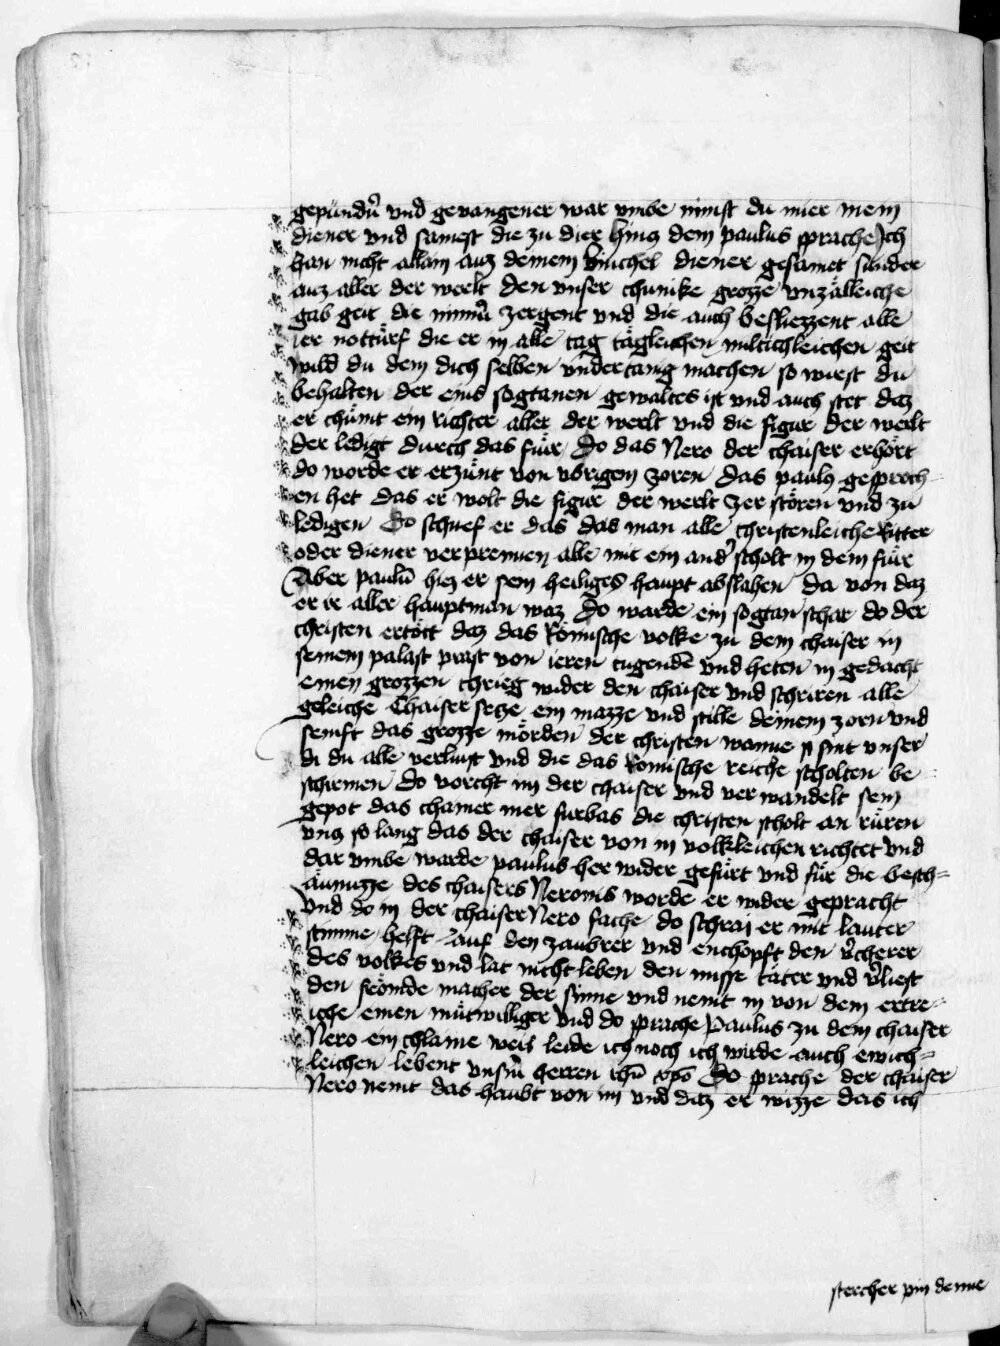 gepunduͤ vnd geuangener war vmbe nimst du mier mein
diener vnd samest die zu dier hincz dem paulus sprache Ich
han nicht allain aus deinem winchel diener gesamet sunder
auz aller der werlt den vnser chunike grozze vnzälleiche
gab geit die nimmer zergent vnd die auch besliezzent alle
ier notturf die er in alle tag tägleichen miltichleichen geit
wild du dem dich selben vndertanig machen so wirst du
behalten der eins sogtanen gewaltes ist vnd auch stet daz
er chumt ein richter aller der werlt vnd die figur der werlt
der ledigt durch das fuͤr Do das Nero der chaiser erhört
do worde er erzunt von vbrigem zoren das paulus gesproch=
en het das er wolt die figur der werlt zer stören vnd zu
ledigen Do schuef er das das man alle christenleiche Ritter
oder diener verprennen alle mit ein ander scholt in dem fuͤr
Aber paulū hiez er sein heiliges haupt abslahen da von daz
er ir aller hauptman waz Do warde ein sogtan schar do der
christen ertött daz das Römische volke zu dem chaiser in
seinem palast prast von ieren tugendē vnd heten in gedacht
einen grozzen chrieg wider den chaiser vnd schriren alle
geleiche Chaiser secze ein mazze vnd stille deinem zorn vnd
semft das grozze mörden der christen wanne si sint vnser
di du alle verlust vnd die das Romische reiche scholten be=
schirmen do vorcht im der chaiser vnd verwandelt sein
gepot das chainer mer furbas die christen scholt an rüren
vncz so lang das der chaiser von in volkleichen richtet vnd
dar vmbe warde paulus her wider gefürt vnd für die besch=
äunuzze des chaisers Neronis worde er wider gepracht
vnd do in der chaiser Nero sache do schrai er mit lauter
stimme helft auf den zaubrer vnd enchopft den vͤcherer
des volkes vnd lat nicht leben den misse täter vnd vͤliest
den frömde macher der sinne vnd nemt in von dem ertre=
iche einen mütwilliger Vnd do sprache Paulus zu dem chaiser
Nero ein chlaine weil leide ich noch ich wirde auch ewich=
leichen lebent vnsm̄ herren ihū xpō Do sprache der chaiser
Nero nemt das haubt von im vnd daz er wizze das ich
stercher pin denne